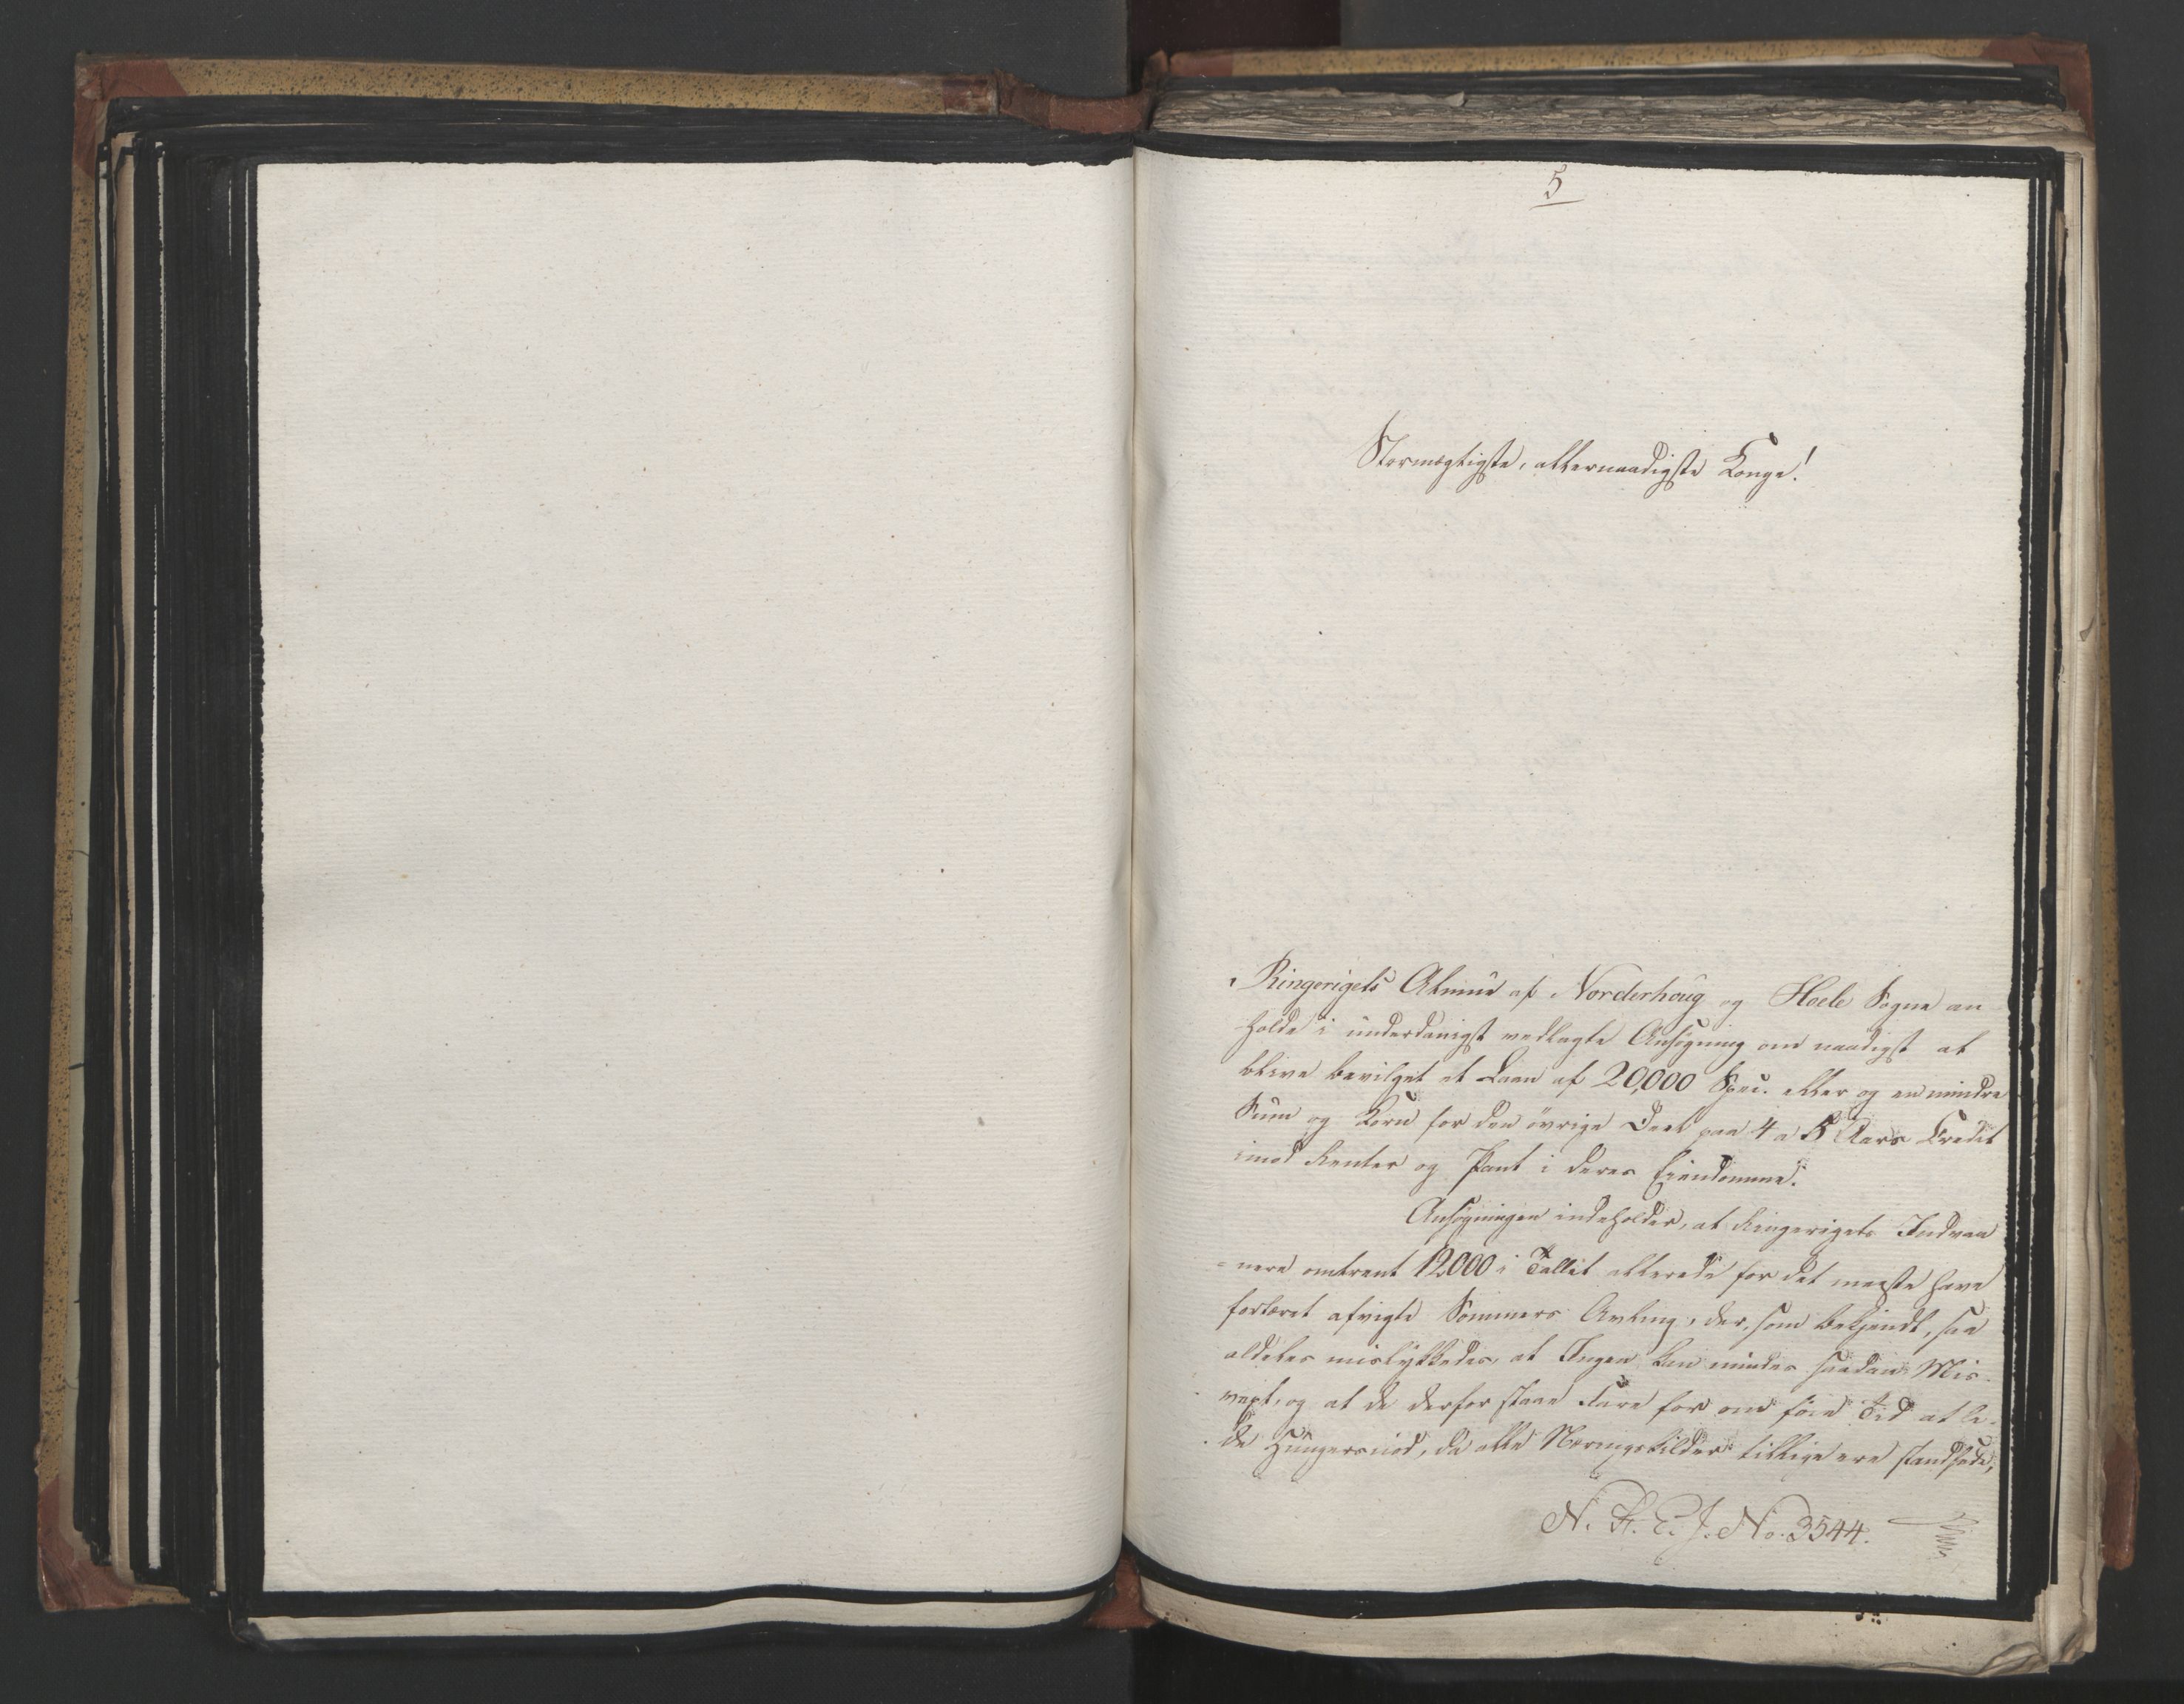 5
Stormægtigste, allernaadigste Konge!
Ringerigets Almue af Norderhoug og Hoele Sogne an
holde i underdanigst vedlagte Ansøgning om naadigst at
blive bevilget et Laan af 20,000 Spec. eller og en mindre
Sum og Korn for den övrige Deel paa 4 a 5 Aars Credit
imod Renter og Pant i deres Eiendomme.
Ansøgningen indeholder, at Ringerigets Indvaa
=nere omtrent 12000 i Tallet allerede for det meeste have
fortæret afvigte Sommers Avling, der, som bekjendt, saa
aldeles mislykkedes, at Ingen kan mindes saadan Mis-
vext, og at de derfor staae Fare for om föie Tid at li-
de Hungersnöd, da alle Næringskilder tillige ere standsede,
N. R. E. J. No. 3544.